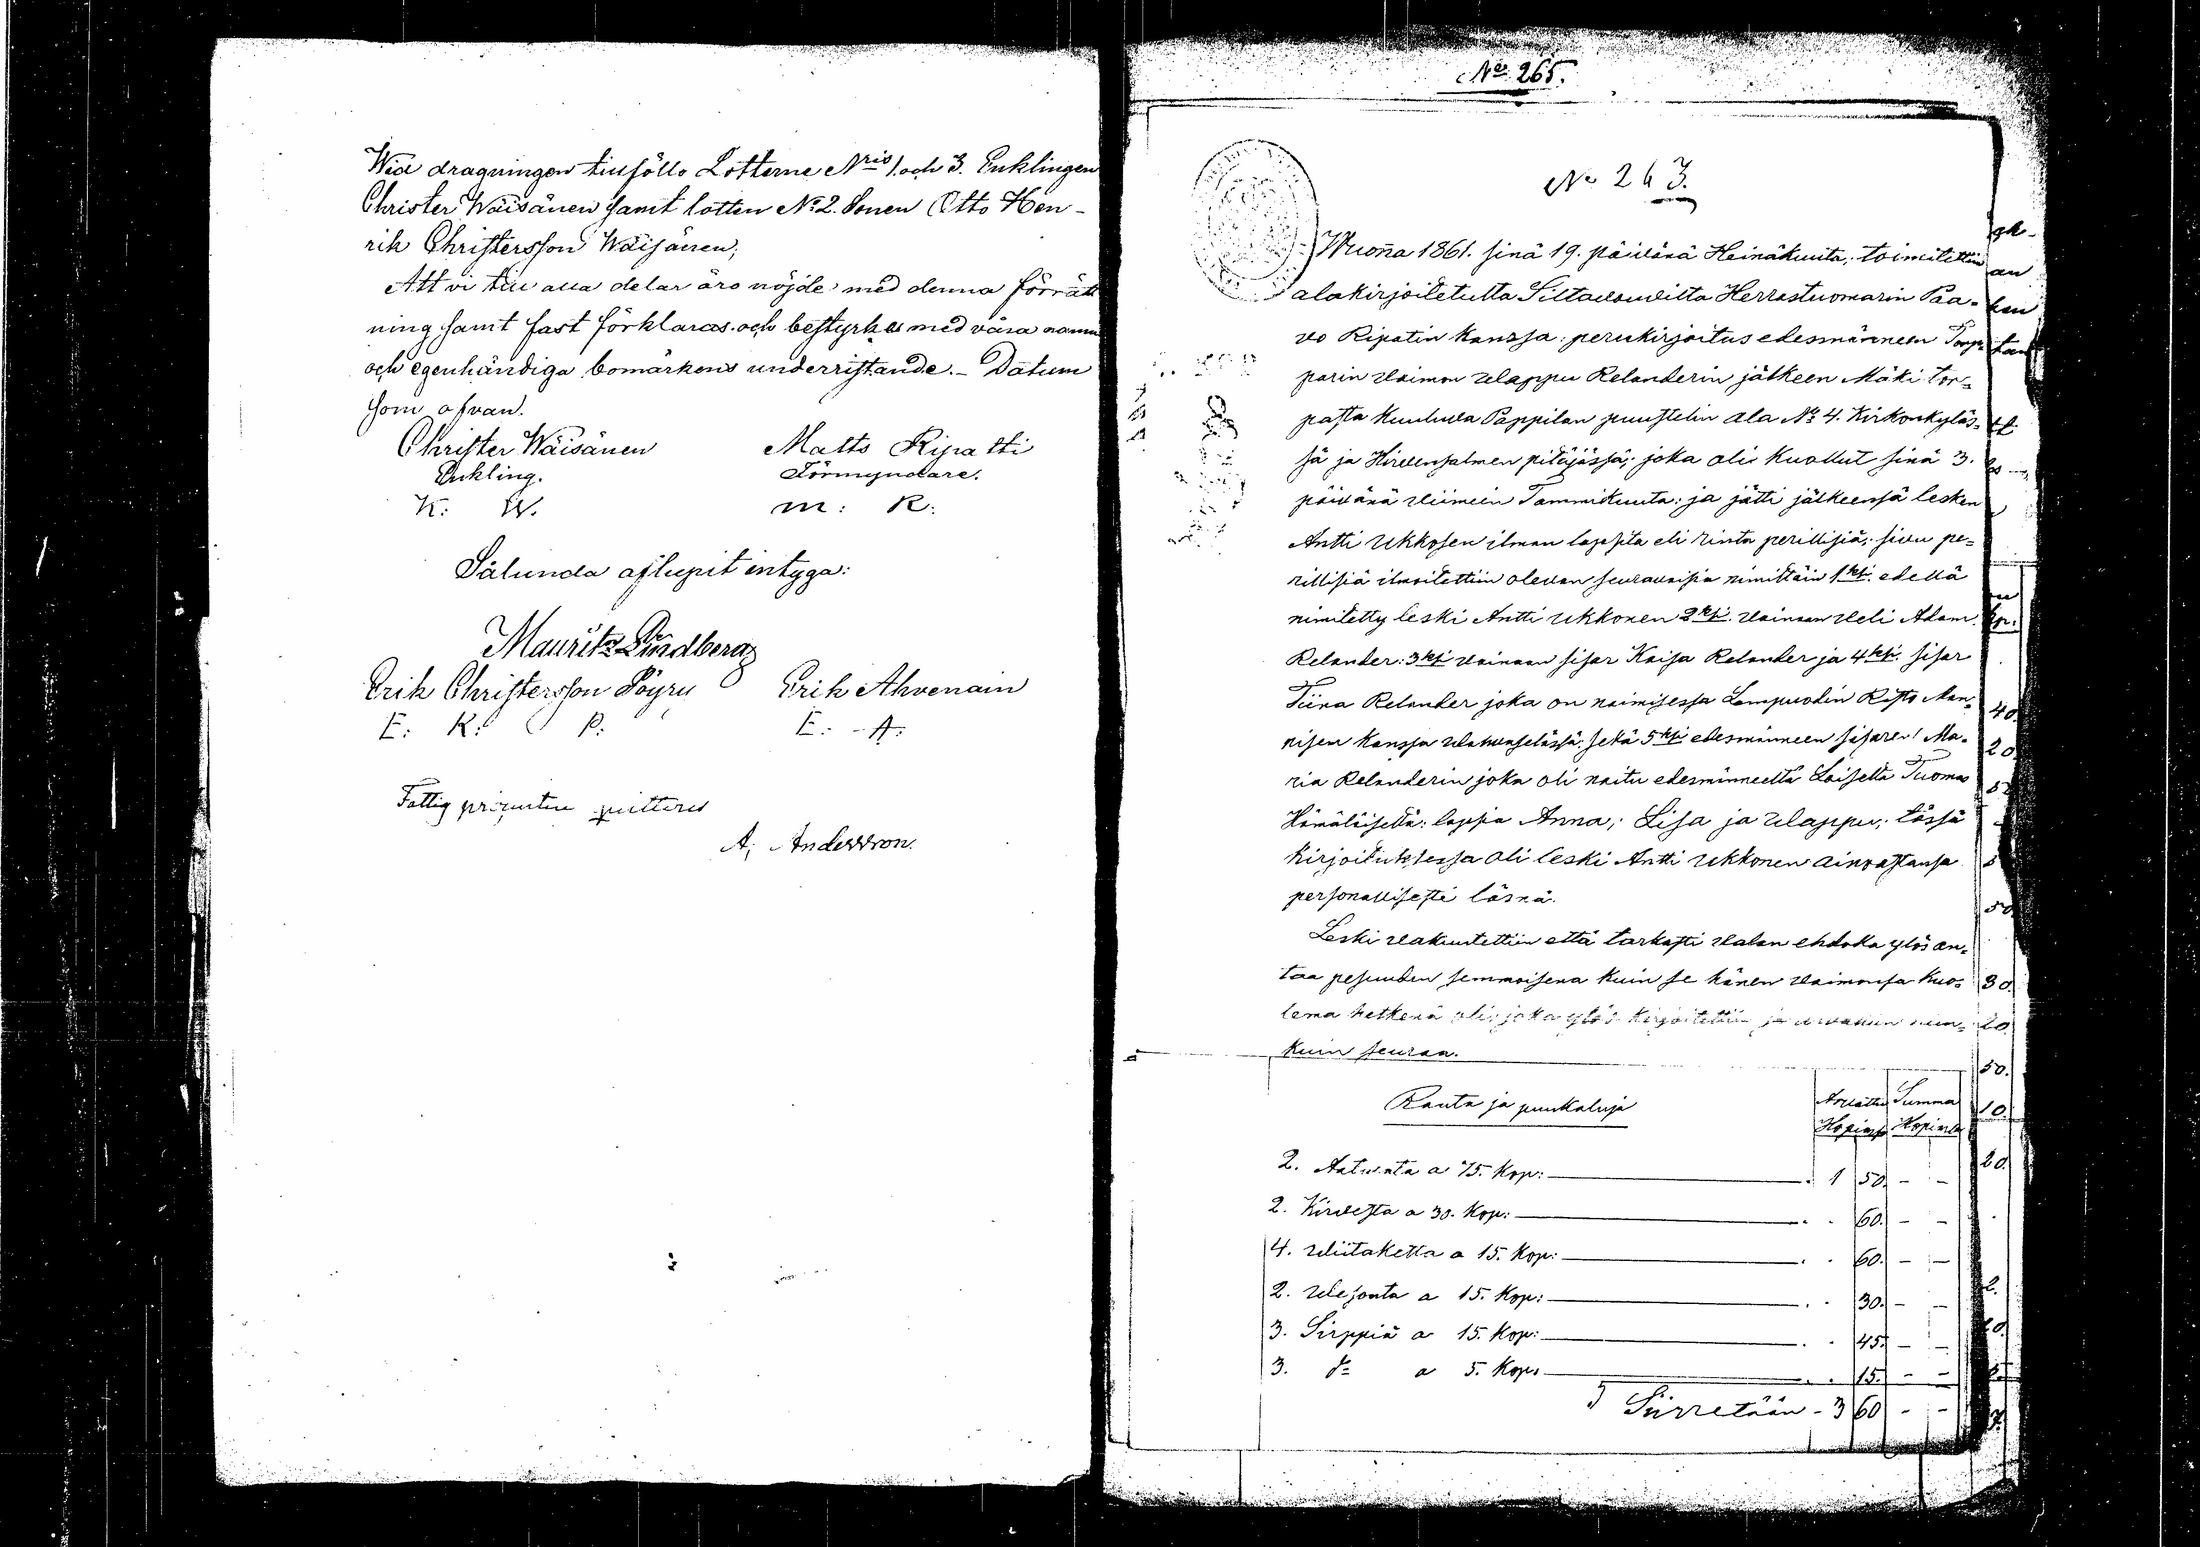 Wid dragningen tillföllo Lotterne Nris 1. och 3. Enklingen
Christer Wäisänen samt lotten No 2. Sonen Otto Hen-
rik Christersson Wäisänen;
Att vi till alla delar äro nöjde med denna förrätt
ning samt fast förklaras och bestyrkes med våra namn
och egenhändiga bomärkens underristande. - Datum
som ofvan.
Christer Wäisänen
Enkling.
K: W.
Matts Ripatti
Förmyndare.
m: R:
Sålunda aflupit intyga:
Mauritz Lindberg
Erik Christersson Pöyry
E: K: P:
Erik Ahvenain
E: A:
Fattig procenten qvitteras
A; Andersson.
No 265.
No 263.
Wuonna 1861. sinä 19. päivänä Heinäkuuta, toimitettiin
alakirjoitetulta Siltavouvilta Herrastuomarin Paa-
vo Ripatin kanssa perukirjoitus edesmänneen Torp-
parin Vaimon Valppu Relanderin jälkeen Mäki tor-
pasta kuuluva Pappilan puustelin ala No 4. Kirkonkyläs-
sä ja Hirvensalmen pitäjässä, joka oli kuollut sinä 3.
päivänä viimein Tammikuuta: ja jätti jälkeensä lesken
Antti Ukkosen ilman lapsita eli rinta perillisiä, sivu pe-
rillisiä ilmoitettiin olevan seuraavaisia nimittäin 1ksi edellä
nimitetty leski Antti Ukkonen 2ksi vainaan veli Adam
Relander: 3ksi vainaan sisar Kaisa Relander ja 4ksi sisar
Tiina Relander joka on naimisessa Lampuodin Risto Man-
nisen kanssa Vahvaselässä, sekä 5ksi edesmänneen sisaren Ma-
ria Relanderin joka oli naitu edesmänneeltä Loiselta Tuomas
Hämäläiseltä: lapsia Anna, Lisa ja Valppu, tässä
kirjoituksessa oli leski Antti Ukkonen ainoastansa
personallisesti läsnä.
Leski vakuutettiin että tarkasti valan ehdolla ylös an-
taa pesuuden semmoisena kuin se hänen vaimonsa kuo-
lema hetkenä oli, joka ylös kirjoitettiin ja arvattiin niin-
kuin seuraa.
Rauta ja puukaluja
Arvattu Summa
Hopiassa Hopiassa
2. Aatuvata a 75. Kop: 1 50. - -
2. Kirvesta a 30. Kop: 60. - -
4. Viitaketta a 15. Kop: 60. - -
2. Vesonta a 15. Kop: 30. - -
3. Sirppiä a 15. Kop: 45. - -
3. do a 5. Kop: 15. - -
Siirretään - 3 60 - -